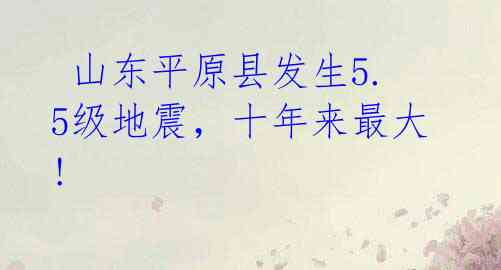 山东平原县发生5.
5级地震，十年来最大
！